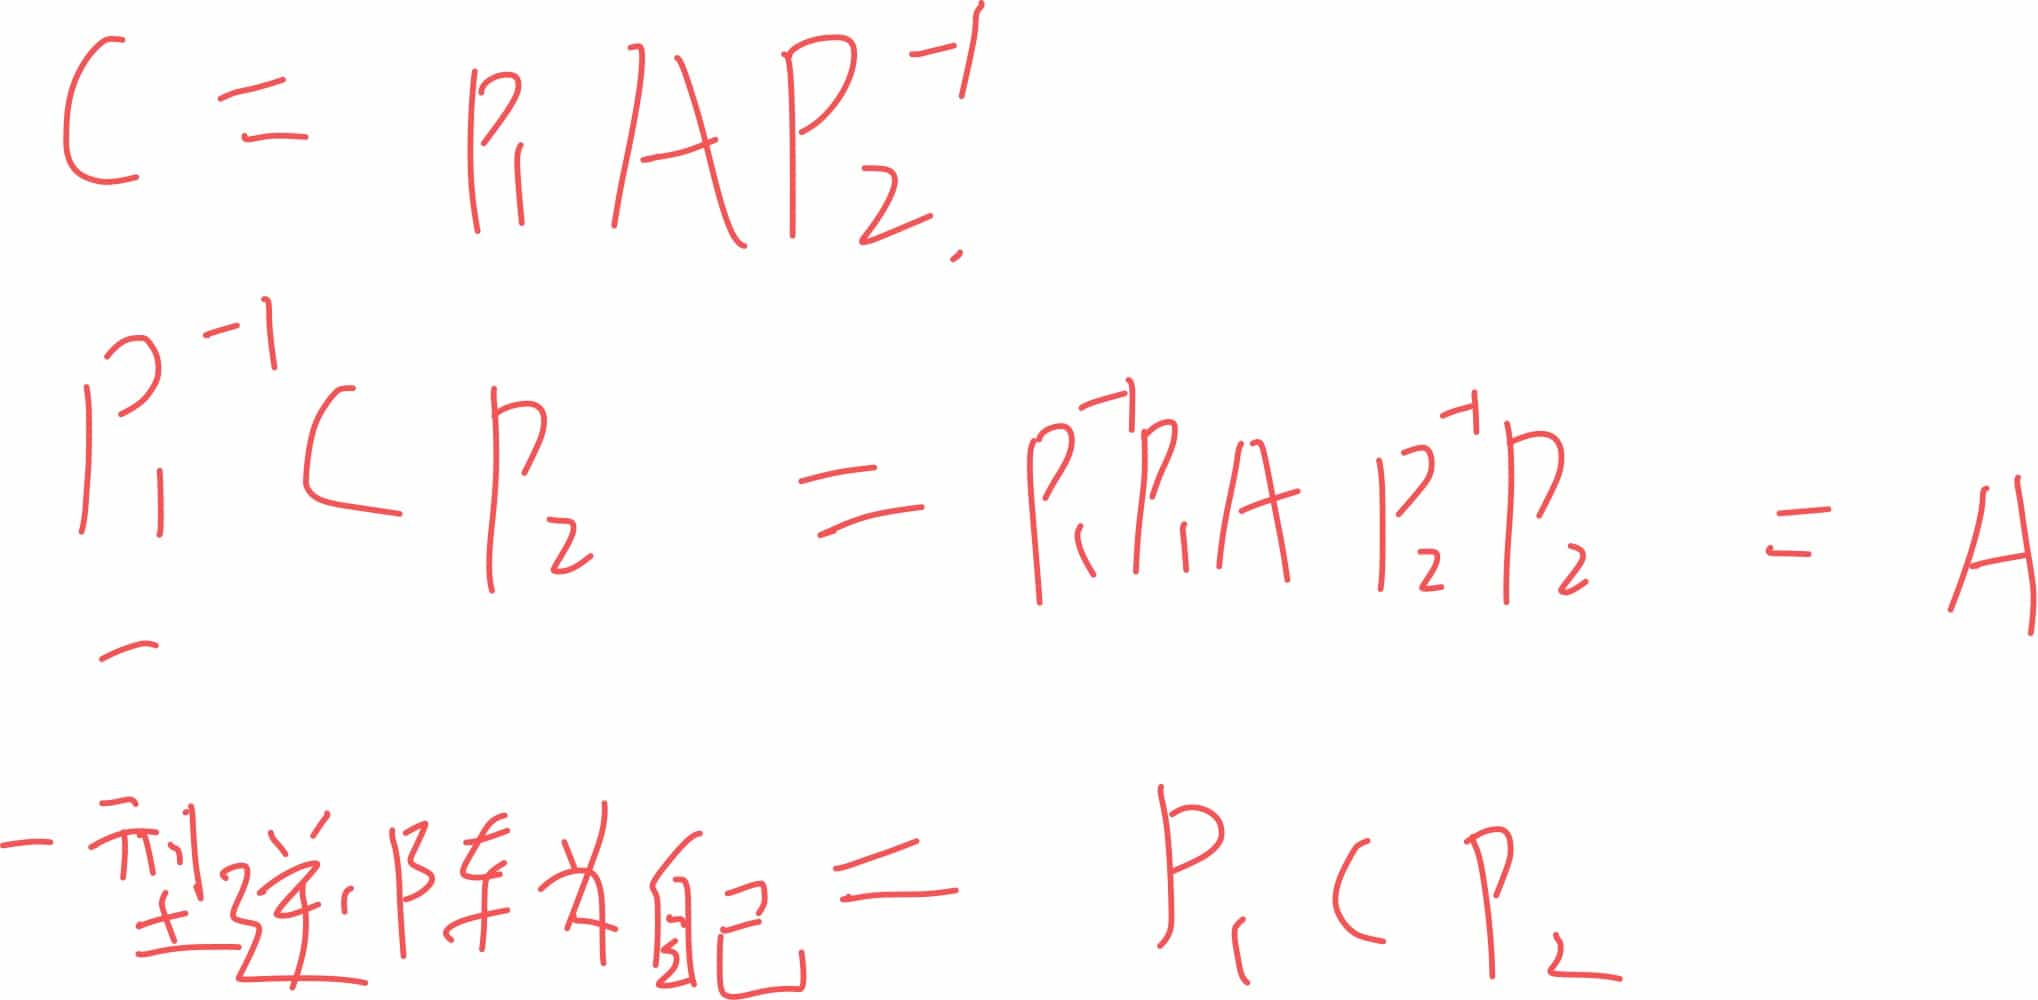 C = P₁AP₂⁻¹.
P₁⁻¹CP₂ = P₁⁻¹P₁AP₂⁻¹P₂ = A
-
一型逆阵为自己 = P₁CP₂